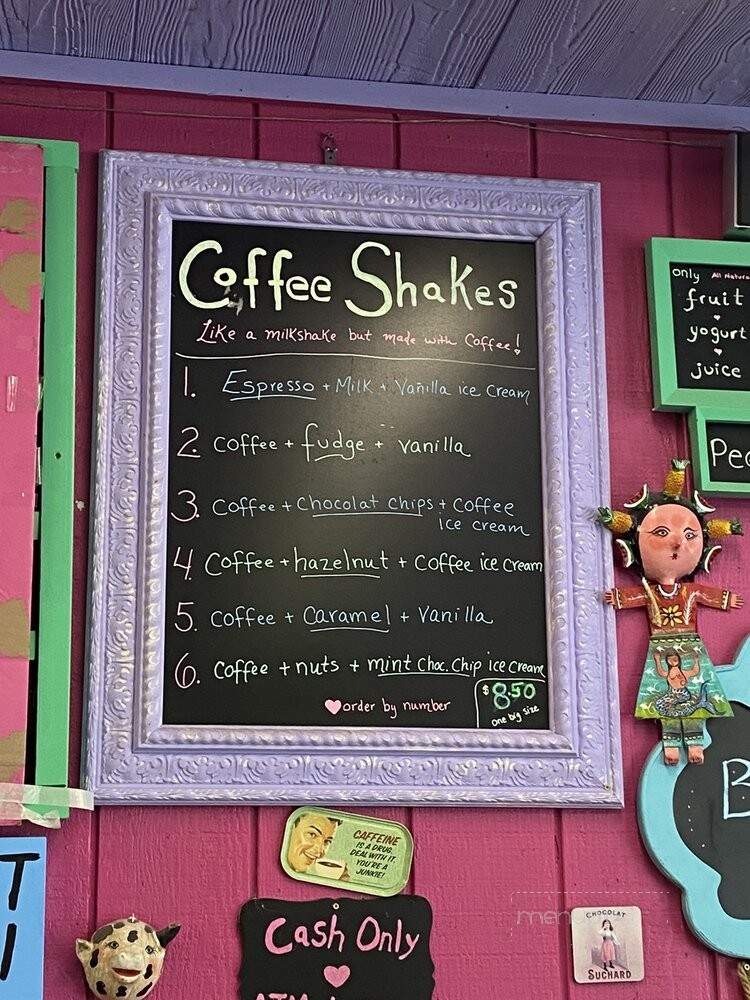 Coffee Shakes
Like a milkshake but made with Coffee!
1. Espresso + Milk + Vanilla ice Cream
2. Coffee + fudge + vanilla
3. Coffee + Chocolat Chips + Coffee
ice cream
4. Coffee + hazelnut + Coffee ice Cream
5. Coffee + Caramel + Vanilla
6. Coffee + nuts + mint Choc. Chip ice Cream
order by number
$8.50
one big size
only All Natural
fruit
yogurt
juice
CAFFEINE
IS A DRUG.
DEAL WITH IT.
YOU'RE A
JUNKIE!
Cash Only
CHOCOLAT
SUCHARD